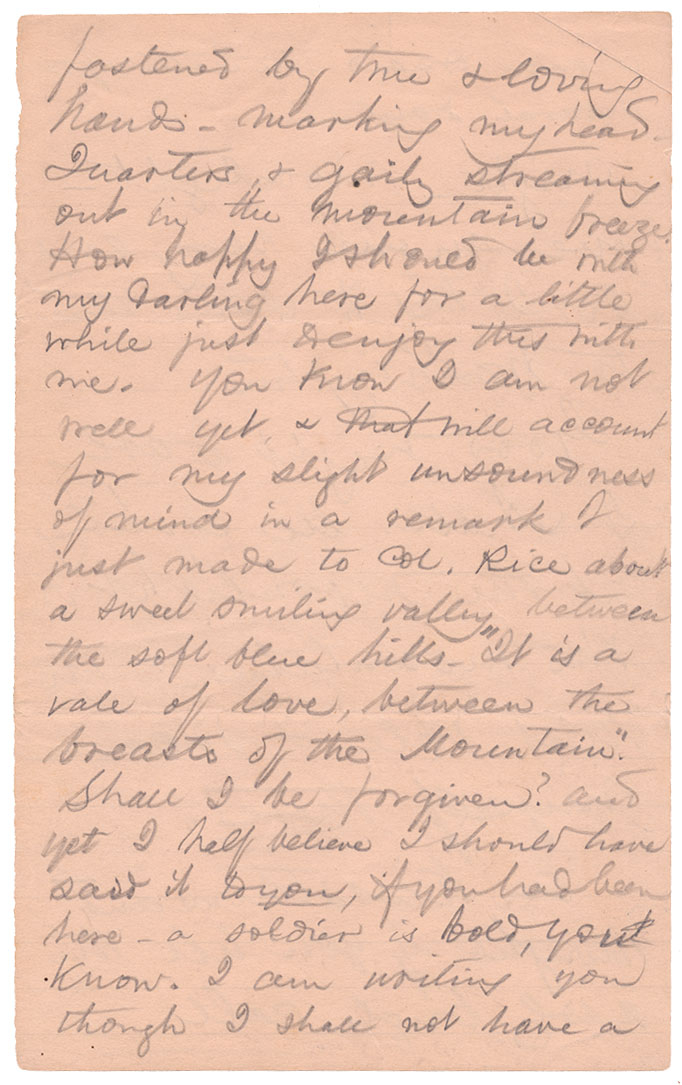 fastened by true & loving
hands – marking my head-
Quarters, & gaily streaming
out in the mountain breeze.
How happy I should be with
my Darling here for a little
while just to enjoy this with
me. You know I am not
well yet, & that will account
for my slight unsoundness
of mind in a remark I
just made to Col. Rice about
a sweet smiling valley between
the soft blue hills – "It is a
vale of love, between the
breasts of the Mountain".
Shall I be forgiven? and
yet I half believe I should have
said it to you, if you had been
here – a soldier is bold, you
know. I am writing you
though I shall not have a